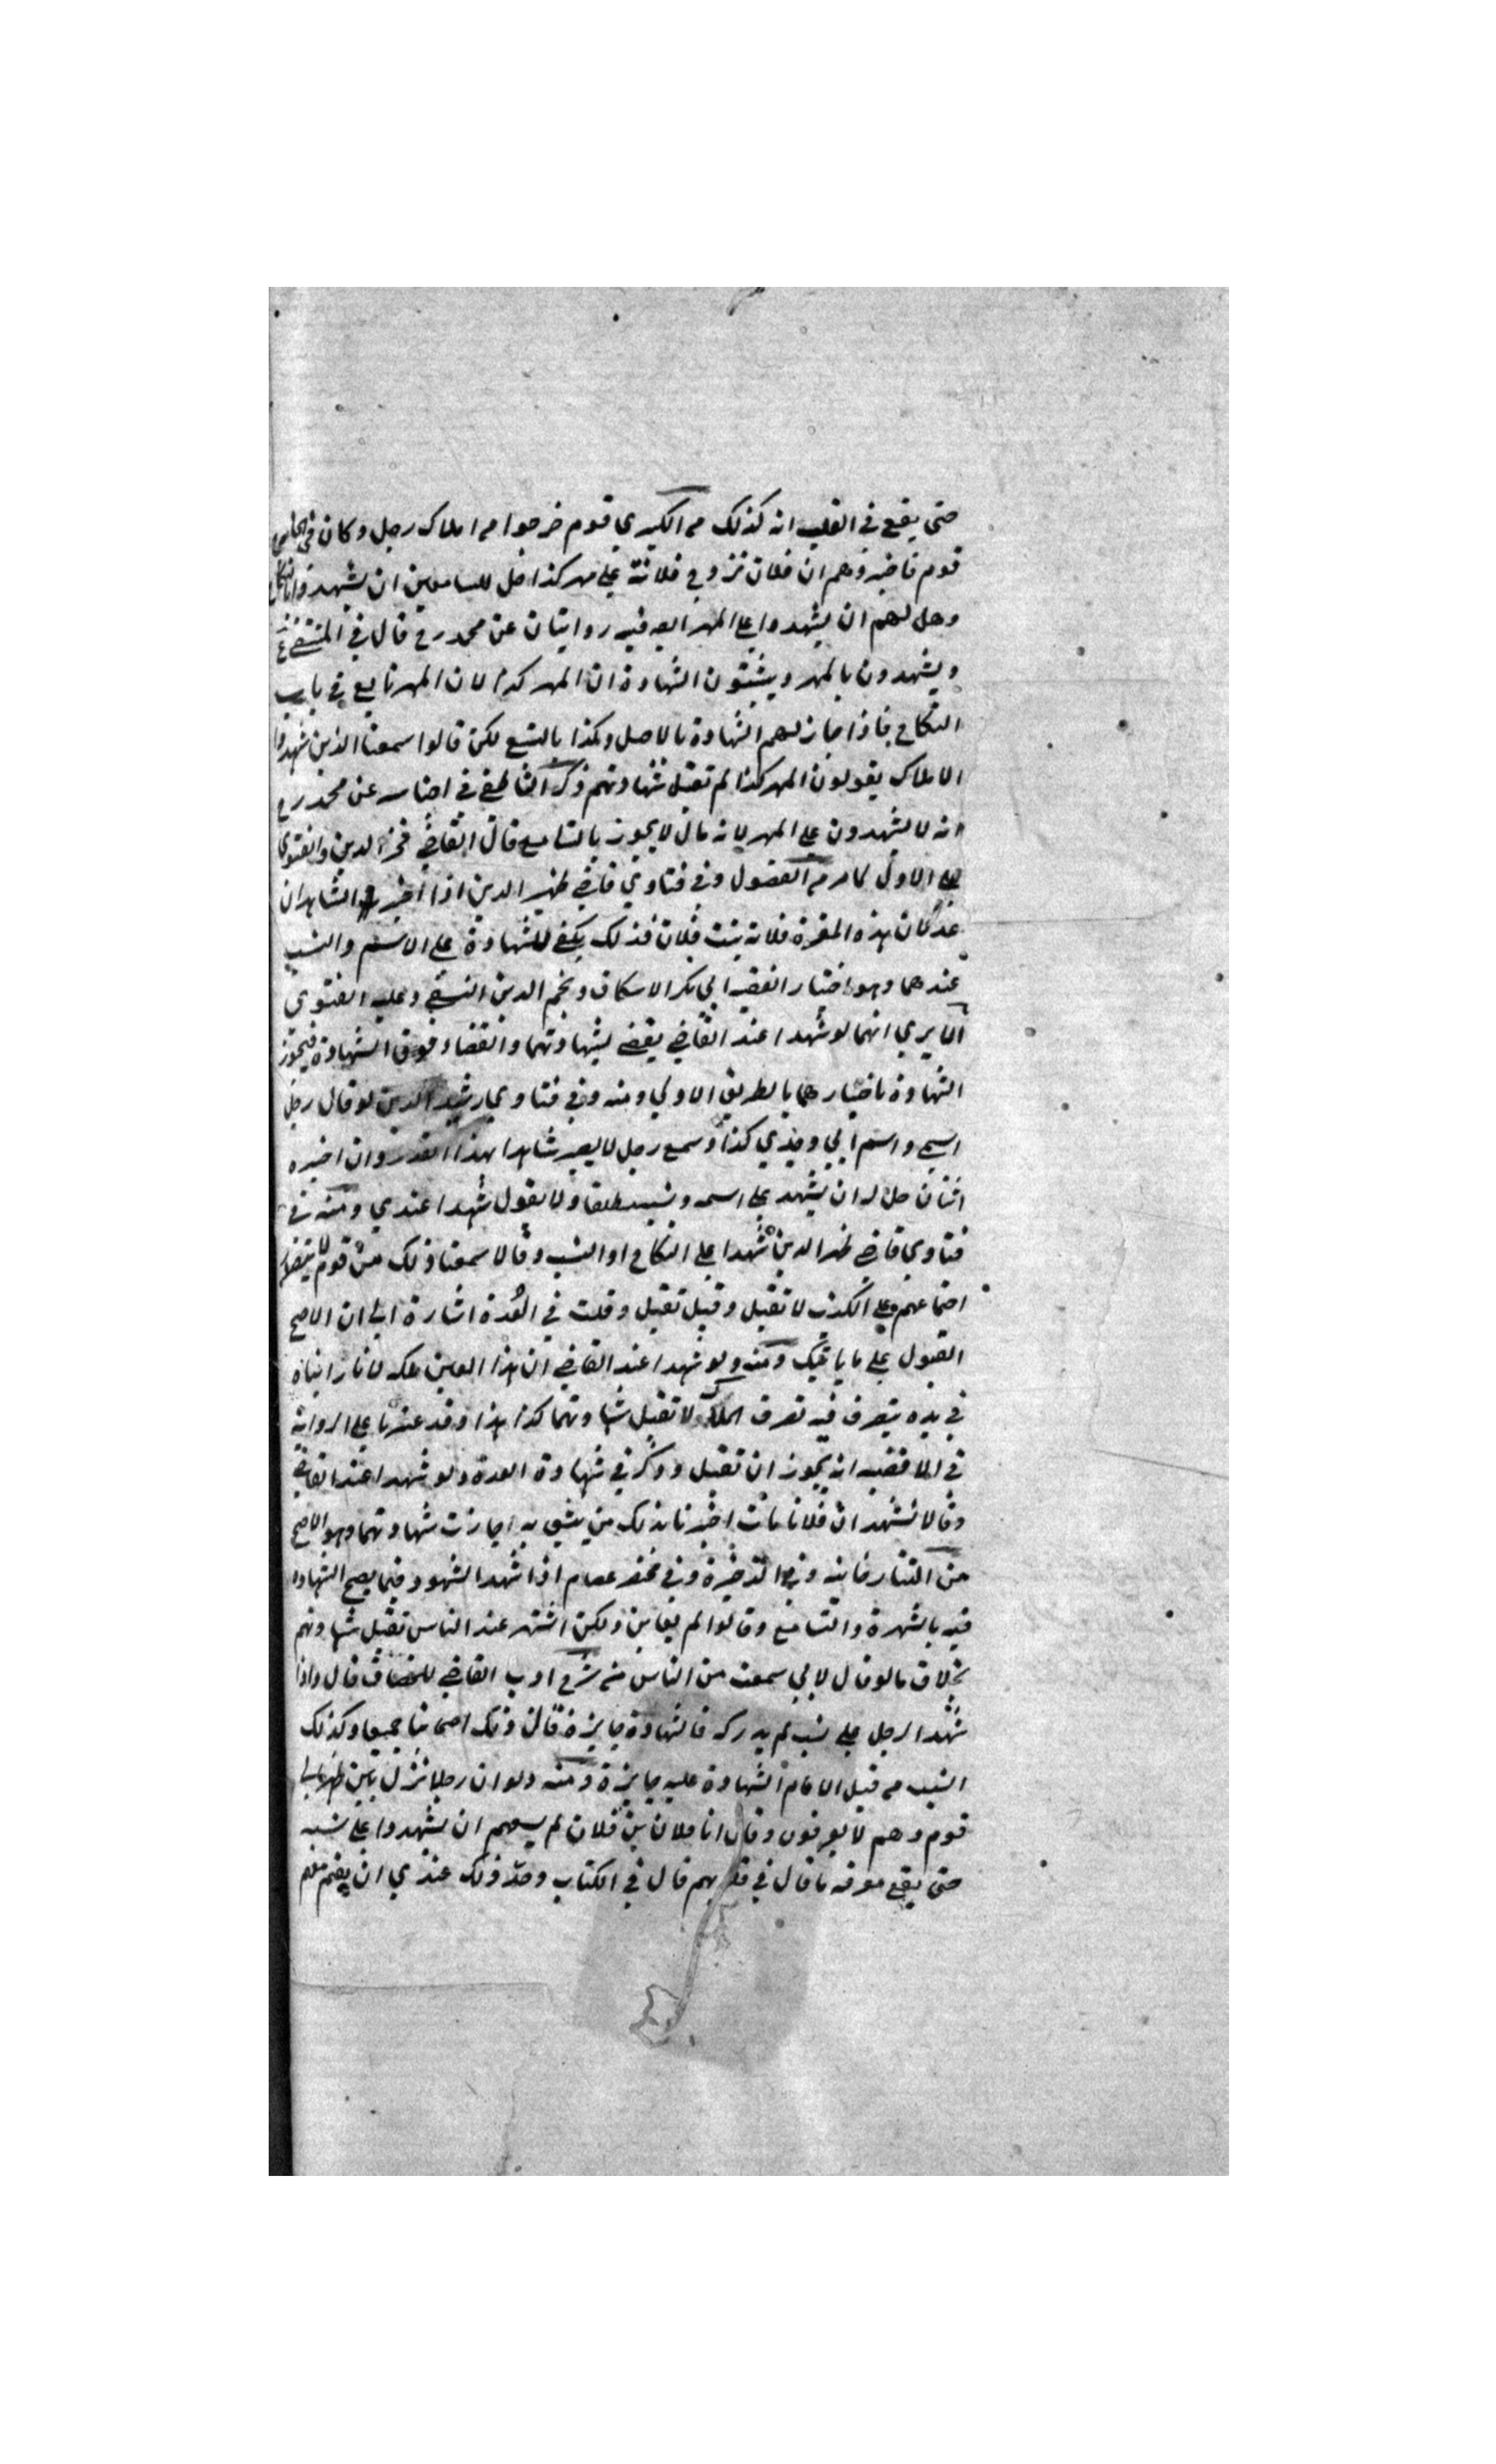 حتى يقع في القلب انه كذلك من الكبري قوم خرجوا من املاك رجل وكان في المجلس
قوم فاخبروهم ان فلان تزوج فلانة على مهر كذا حل للسامعين ان يشهدوا بالنكاح
وهل لهم ان يشهدوا على المهر ايضا فيه روايتان عن محمد رح قال في المنتقى
ويشهدون بالمهر ويثبتون الشهادة ان المهر كذا لان المهر تابع في باب
النكاح فاذا جاز لهم الشهادة بالاصل وكذا بالتبع لكن قالوا سمعنا الذين شهدوا
الاملاك يقولون المهر كذا لم تقبل شهادتهم ذكر الناطفي في اجناسه عن محمد رح
انه لا يشهدون على المهر لانه مال لا يجوز بالتسامع قال القاضي فخر الدين والفتوى
على الاول كما مر من الفصول وفي فتاوي قاضي ظهير الدين اذا اخبر الشاهدان
عدلان هذه المقرة فلانة بنت فلان فذلك يكفي للشهادة على الاسم والنسب
عندهما وهو اختيار الفقيه ابي بكر الاسكاف ونجم الدين النسفي وعليه الفتوى
الا يري انهما لو شهدا عند القاضي يقضي بشهادتهما والقضاء فوق الشهادة فيجوز
الشهادة باخبارهما بالطريق الاولي ومنه وفي فتاوي رشيد الدين لو قال رجل
اسمي واسم ابي وجدي كذا وسمع رجل لا يصير شاهدا بهذا القدر وان اخبره
اثنان حل له ان يشهد على اسمه ونسبه مطلقا ولا يقول شهدا عندي ومنه في
فتاوي قاضي ظهير الدين شهدا على النكاح او النسب وقالا سمعنا ذلك من قوم لا يتصور
اجتماعهم على الكذب لا تقبل وقيل تقبل وقلت في العدة اشارة الى ان الاصح
القبول على ما ياتيك ومنه ولو شهدا عند القاضي ان هذا العين ملكه لانا رايناه
في يده يتصرف فيه تصرف الملاك لا تقبل شهادتهما كذا هذا وقد عثرنا على الرواية
في الاقضيه انه يجوز ان تقبل وذكر في شهادة العدة ولو شهدا عند القاضي
وقالا نشهد ان فلانا مات اخبرنا بذلك من يثق به جازت شهادتهما وهو الاصح
من التتارخانيه وفي الذخيرة وفي مختصر عصام اذا شهد الشهود فيما يصح الشهادة
فيه بالشهرة والتسامع وقالوا لم نعاين ولكن اشتهر عند الناس تقبل شهادتهم
بخلاف ما لو قال لاني سمعت من الناس من شرح ادب القاضي للخصاف قال واذا
شهد الرجل على نسب لم يدركه فالشهادة جايزة قال وذلك اصحابنا جميعا وكذلك
النسب من قبل الامام الشهادة عليه جايزة ومنه ولو ان رجلا نزل بين ظهراني
قوم وهم لا يعرفونه وقال انا فلان بن فلان لم يسعهم ان يشهدوا على نسبه
حتى يقع معرفه ما قال في قلوبهم قال في الكتاب وحد ذلك عندي ان يقيم معهم